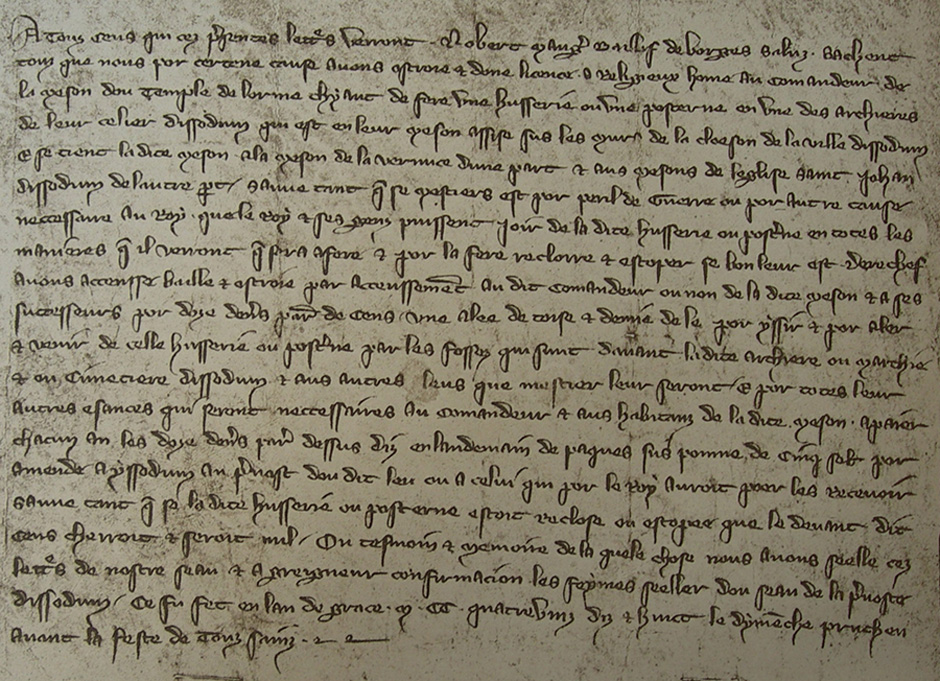 A touz ceus qui cez p̄sentes lettr̄s verront. Robert Mauḡr Baillif de borges saluz. Sachent
touz que nous por certene cause avons ostroié & doné licence a Religieux home au Comandeur de
la meson dou Temple de lorme de fere une husserie ou une posterne en une des archieres
de leur celier dissodum qui est en leur meson assise sus les murs de la cloeson de la ville dissodum
& se tient la dite meson a la meson de la vernuce dune part & aus mesons de leglise saint Johan
dissodum de lautre p̄t. Sauve tant q̄ se mestiers est por peril de Guerre ou por autre cause
neccessaire au Roy. que le Roy & ses genz puissent joir de la dite husserie ou post̄ne en totes les
manieres q̄ il verront q̄ sera a fere & por la fere reclorre & estoper se bon leur est. Derechef
avons accensse baillé & ostroié par accenssem̄t au dit Comandeur ou non de la dite meson & a ses
successeurs por doze den̄s par̄ de cens. une alee de toise & demie de lé por yssir & por aler
& venir de celle husserie ou post̄ne par les fossez qui sunt davant ladite archiere ou marchié
& ou cimetiere dissodum & aus autres leus que mestier leur seront. & por totes leur
autres esances qui seront neccessaires au Comandeur & aus habitanz de la dite meson. a paier
chacun an les doze den̄s par̄ dessus diz en landemain de paques sus poinne de cinq solz por
amende a yssodum au p̄vost dou dit leu ou a celui qui por le Roy auroit poer les recevoir
sauve tant q̄ se la dite husserie ou posterne estoit reclose ou estopee que le devant dit
cens cherroit & seroit nul. Ou tesmoin & memoire de la quele chose nous avons seellé cez
lettr̄s de nostre seau. & a greigneur confirmacion les feymes seeller dou seau de la p̄vosté
dissodum. Ce fu fet en lan de grace. M. CC. quatrevinz diz & huict le dymenche prochen
avant la feste de touz sainz.